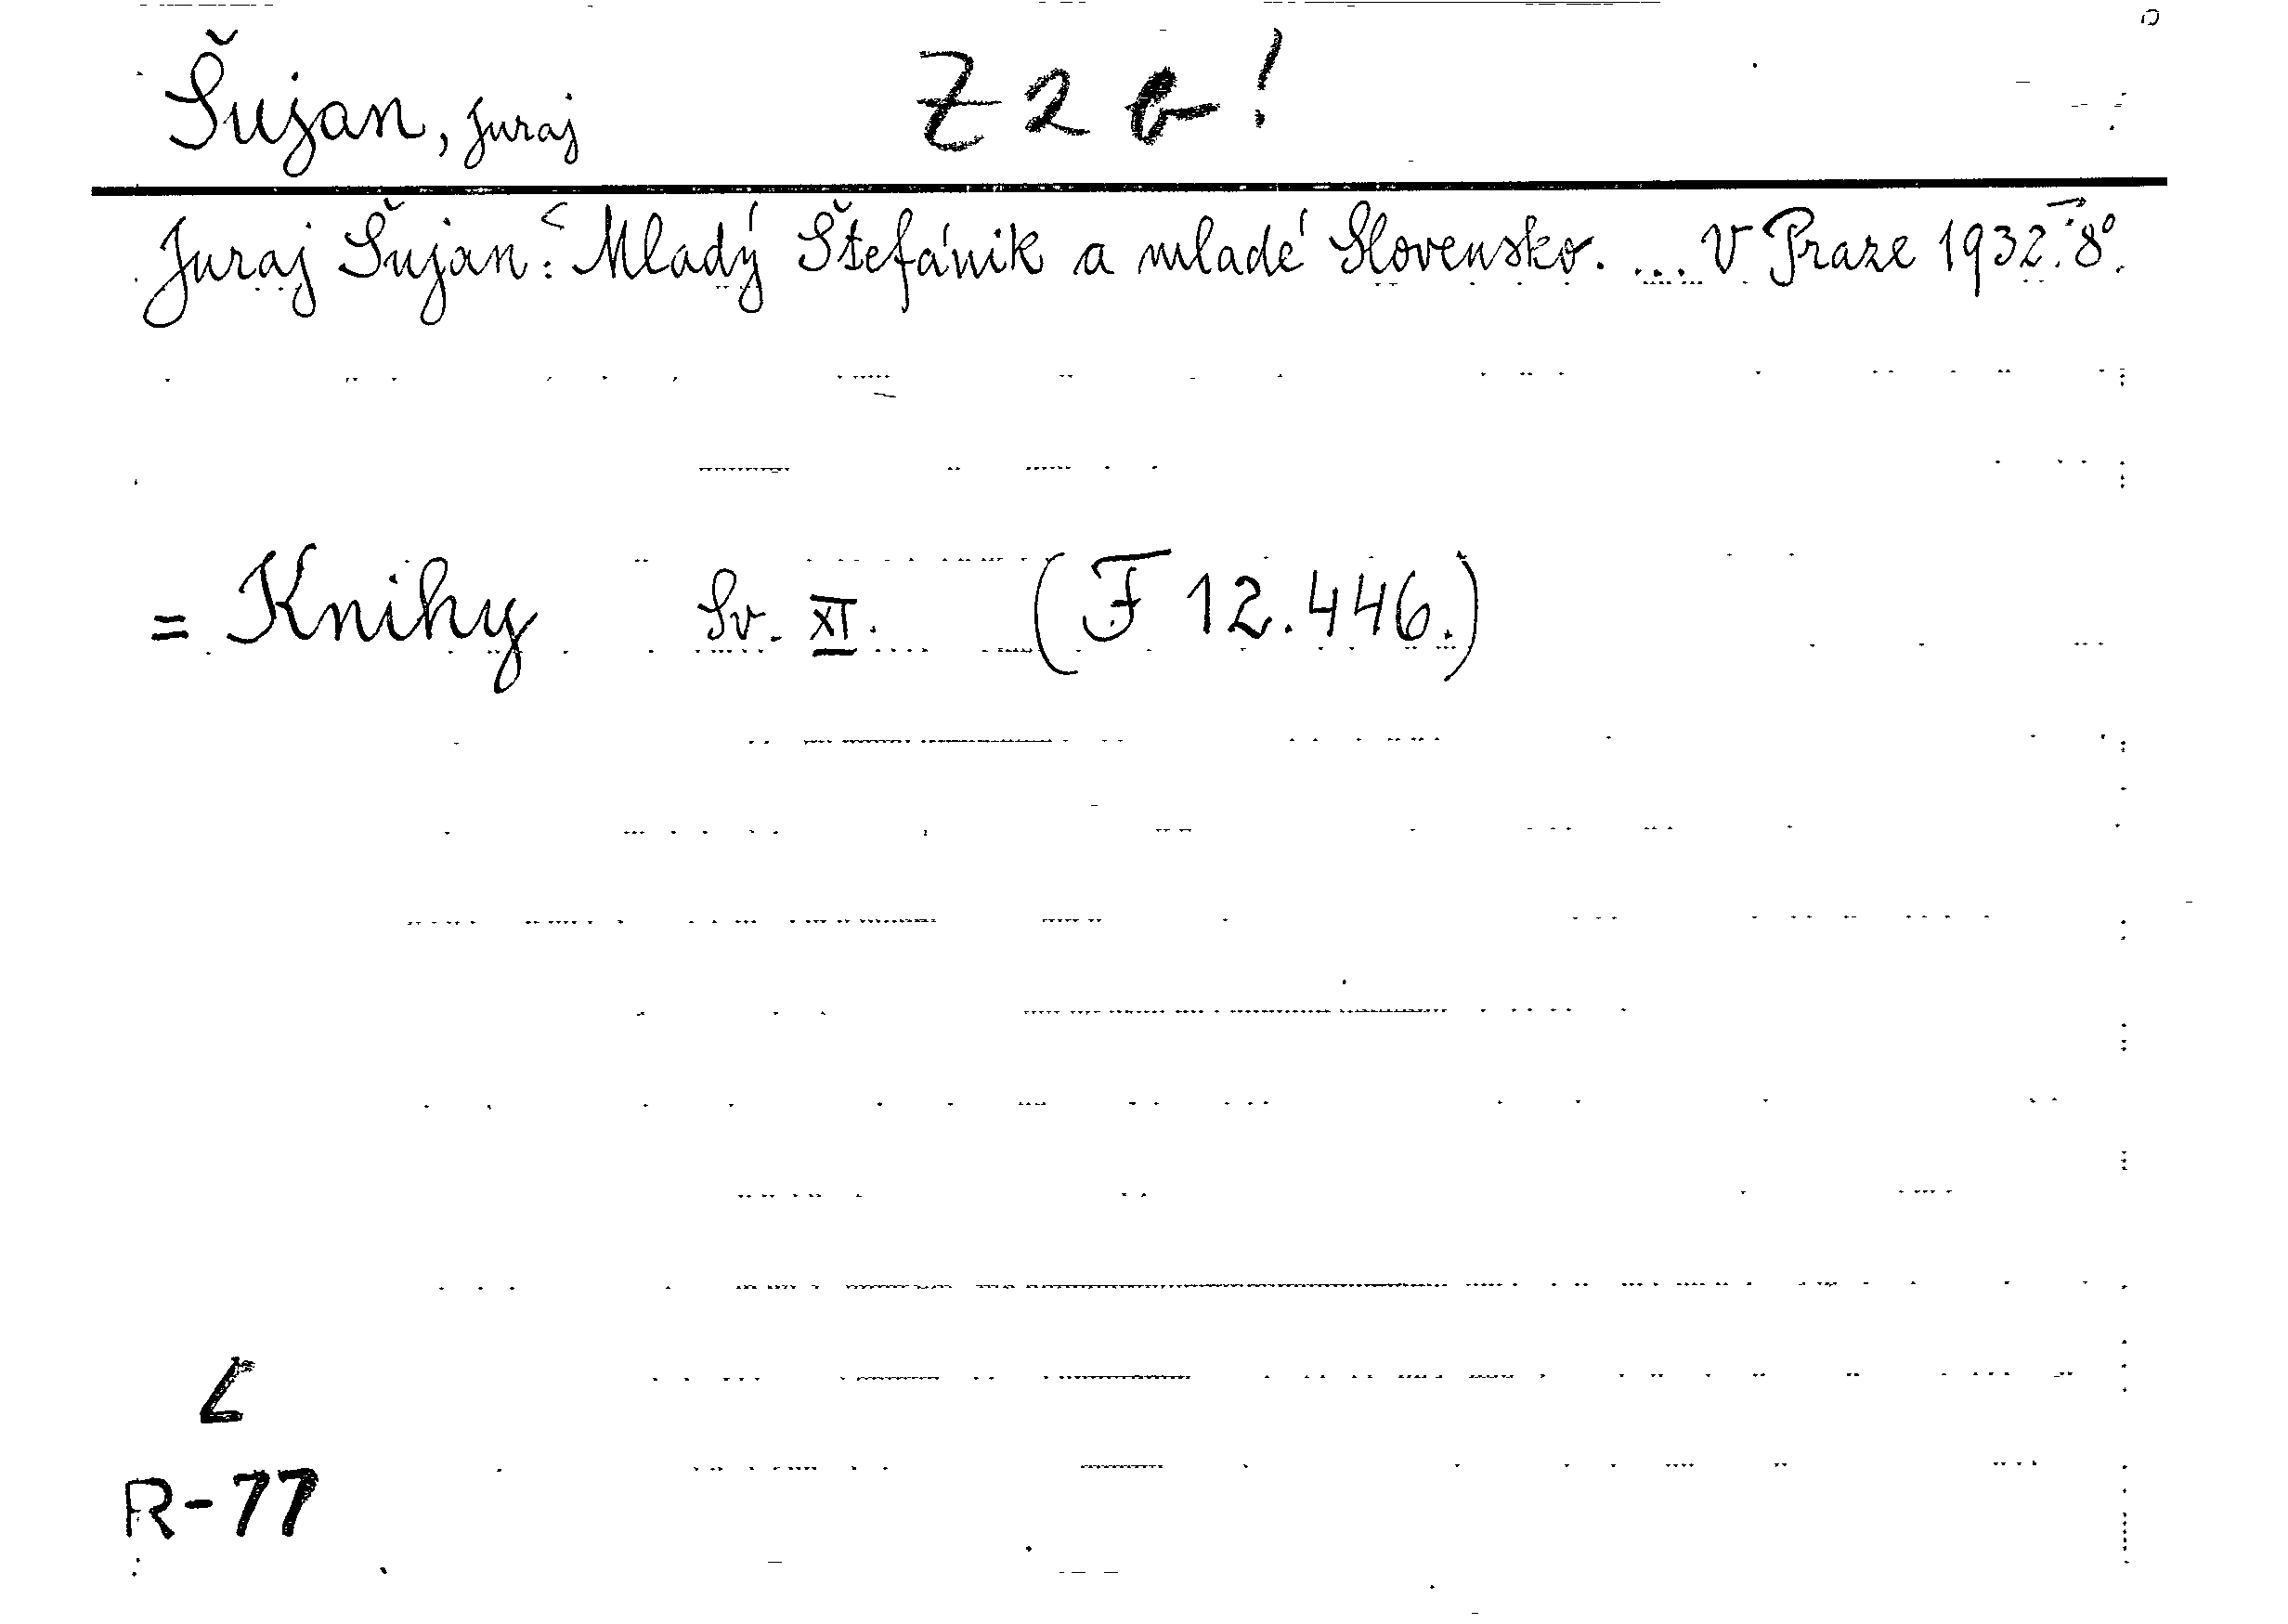 Šujan, Juraj Z 2 b!
Juraj Šujan: Mladý Štefánik a mladé Slovensko. .... V Praze 1932. 8°.
= Knihy Sv. XI. (F 12.446.)
L
R-77